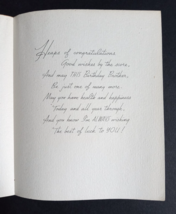 Heaps of congratulations
Good wishes by the score,
And may THIS Birthday Brother,
Be just one of many more.
May you have health and happiness
Today and all year through,
And you know I'm ALWAYS wishing
The best of luck to YOU!